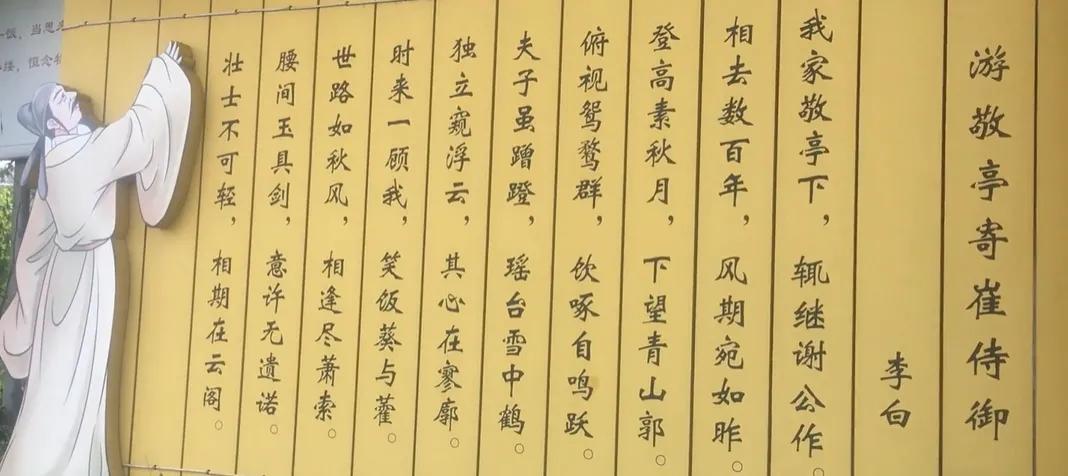 游敬亭寄崔侍御
李白
我家敬亭下，辄继谢公作。
相去数百年，风期宛如昨。
登高素秋月，下望青山郭。
俯视鸳鹜群，饮啄自鸣跃。
夫子虽蹭蹬，瑶台雪中鹤。
独立窥浮云，其心在寥廓。
时来一顾我，笑饭葵与藿。
世路如秋风，相逢尽萧索。
腰间玉具剑，意许无遗诺。
壮士不可轻，相期在云阁。